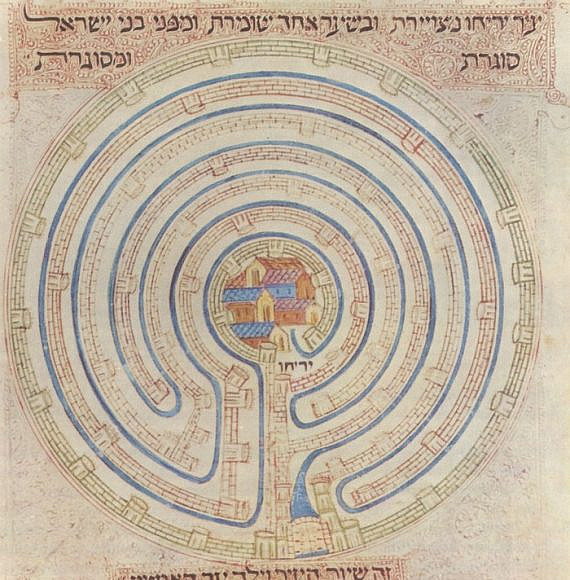 עיר יריחו מצויירת ובשיער אחד שומירת ומפני בני ישראל
סוגרת ומסוגרת
יריחו
זה